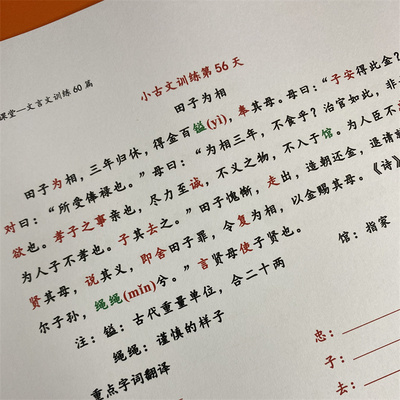 课堂—文言文训练60篇
小古文训练第56天
田子为相
田子为相，三年归休，得金百镒(yì)，奉其母。母曰：“子安得此金？”
对曰：“所受俸禄也。”母曰：“为相三年，不食乎？治官如此，非
欲也。孝子之事亲也，尽力至诚，不义之物，不入于馆。为人臣不
为人子不孝也。子其去之。”田子愧惭，走出，造朝还金，退请就
贤其母，说其义，即舍田子罪，令复为相，以金赐其母。《诗》
尔子孙，绳绳(mǐn)兮。”言贤母使子贤也。
注：镒：古代重量单位，合二十两 馆：指家
绳绳：谨慎的样子
重点字词翻译
忠：
子：
去：